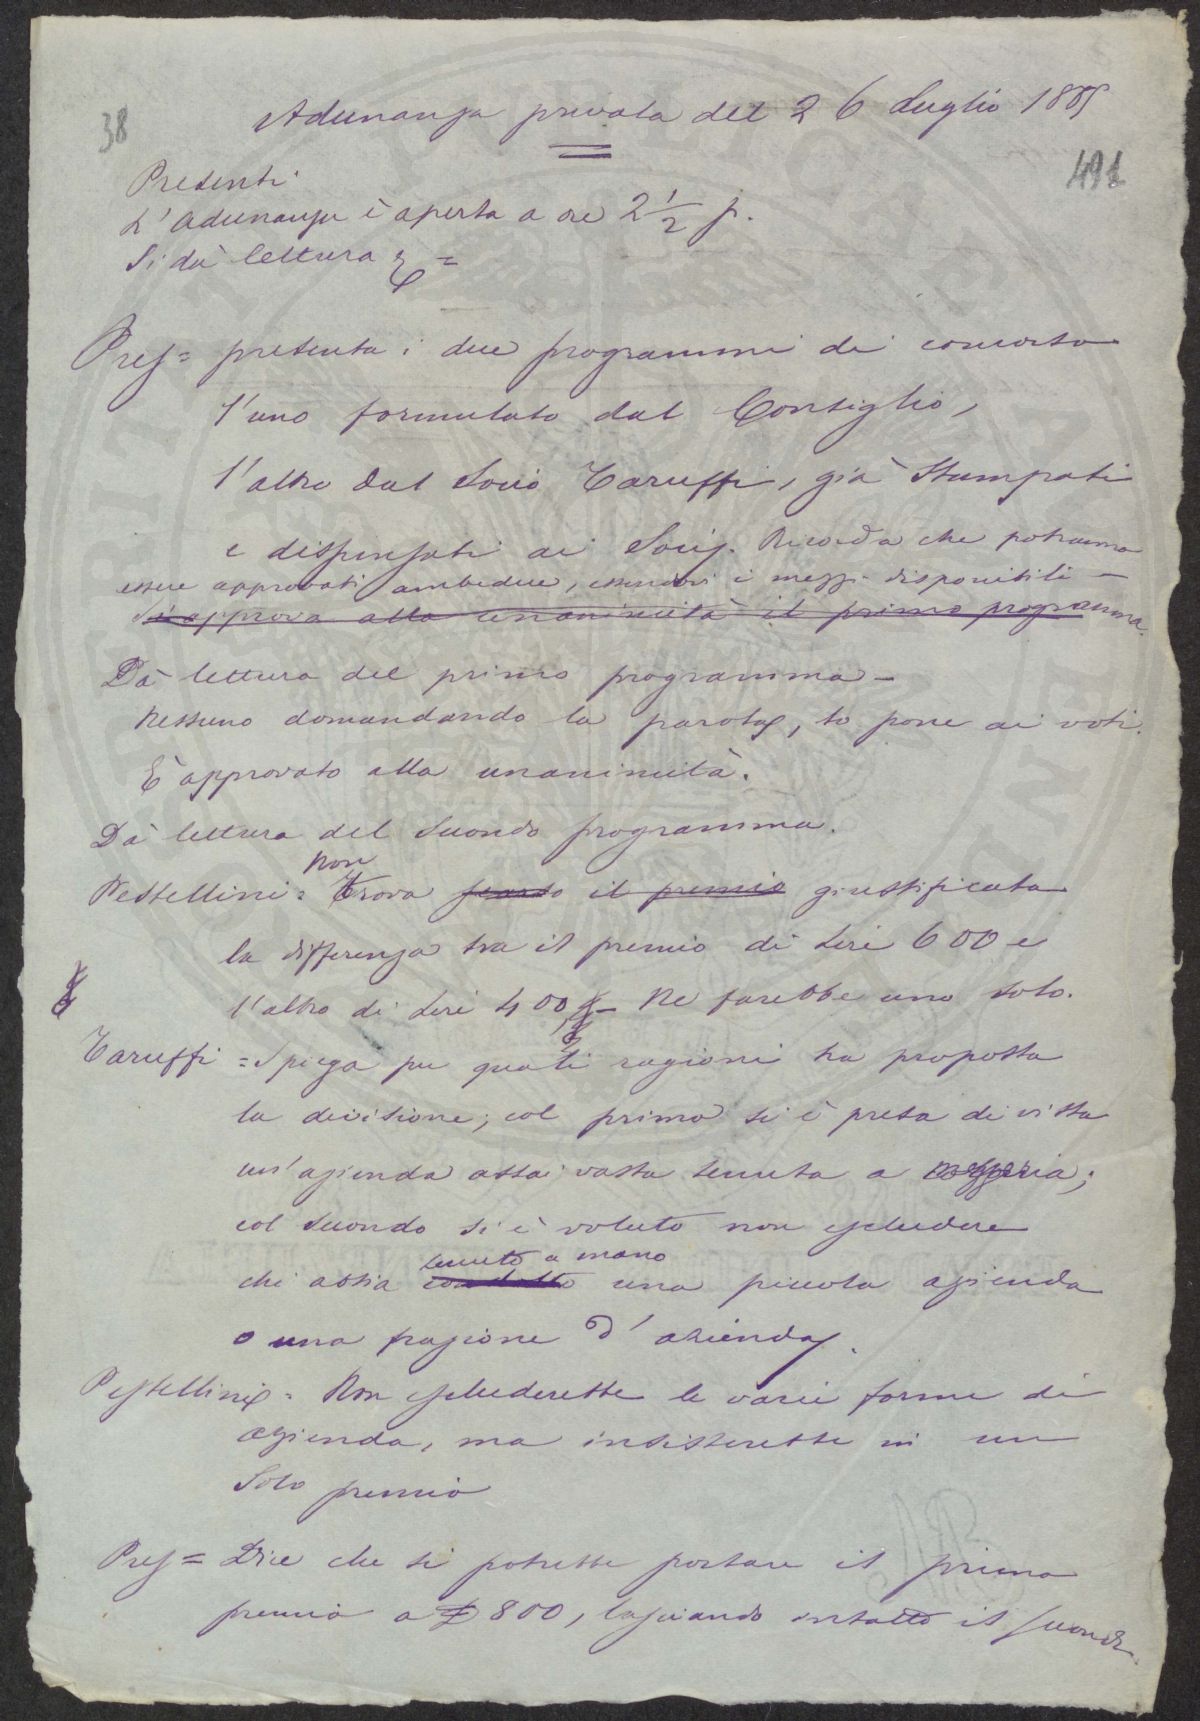 38
Adunanza privata del 26 Luglio 1885
491
Presenti
L'Adunanza è aperta a ore 2 1/2 p.
Si dà lettura &=
Pres= presenta i due programmi di concorso
l'uno formulato dal Consiglio,
l'altro dal Socio Taruffi, già stampati
e dispensati ai Socij. Ricorda che potranno
essere approvati ambedue, essendovi i mezzi disponibili –
Si approva alla unanimità il primo programma.
Dà lettura del primo programma –
Nessuno domandando la parola, lo pone ai voti.
È approvato alla unanimità.
Dà lettura del secondo programma.
non
Pestellini = Trova il premio giustificata
la differenza tra il premio di Lire 600 e
l'altro di Lire 400 – Ne farebbe uno solo.
Taruffi = Spiega per quali ragioni ha proposta
la divisione; col primo si è presa di vista
un'azienda assai vasta tenuta a
col secondo si è voluto non escludere
tenuto a mano
chi abbia condotto una piccola azienda
o una frazione d'azienda.
Pestellini = Non escluderebbe le varie forme di
azienda, ma insisterebbe in un
solo premio
Pres = Dice che si potrebbe portare il primo
premio a £ 800, lasciando intatto il secondo.